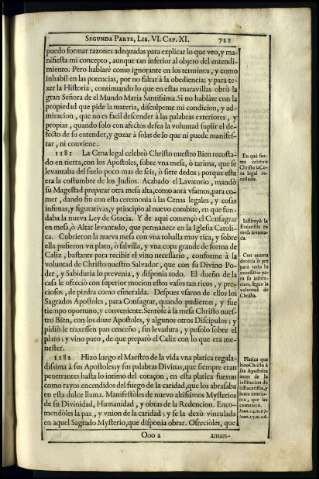 SEGUNDA PARTE, LIB. VI. CAP. XI. 723
puedo formar razones adequadas para explicar lo que veo, y manifiesta mi concepto, aunque tan inferior al objeto del entendimiento. Pero hablarè como ignorante en los terminos, y como
inhabil en las potencias, por no faltar à la obediencia; y para texer la Historia, continuando lo que en estas maravillas obrò la
gran Señora de el Mundo Maria Santissima. Si no hablàre con la
propriedad que pide la materia, disculpeme mi condicion, y admiracion, que no es facil descender à las palabras exteriores, y
proprias, quando solo con afectos desea la voluntad suplir el defecto de su entender, y gozar à solas de lo que ni puede manifestar, ni conviene.
1181 La Cena legal celebrò Christo nuestro Bien recostado en tierra, con los Apostoles, sobre vna mesa, ò tarima, que se
levantaba del suelo poco mas de seis, ò siete dedos; porque esta
era la costumbre de los Judios. Acabado el Lavatorio, mandò
su Magestad preparar otra mesa alta, como aora vsamos, para comer, dando fin con esta ceremonia à las Cenas legales, y cosas
infimas, y figurativas, y principio al nuevo combite, en que fundaba la nueva Ley de Gracia. Y de aqui començò el Consagrar
en mesa, ò Altar levantado, que permanece en la Iglesia Catolica. Cubrieron la nueva mesa con vna toalla muy rica, y sobre
ella pusieron vn plato, ò salvilla, y vna copa grande de forma de
Caliz, bastante para recibir el vino necessario, conforme à la
voluntad de Christo nuestro Salvador, que con su Divino Poder, y Sabiduria lo prevenia, y disponia todo. El dueño de la
casa le ofreciò con superior mocion estos vasos tan ricos, y preciosos, de piedra como esmeralda. Despues vsaron de ellos los
Sagrados Apostoles, para Consagrar, quando pudieron, y fue
tiempo oportuno, y conveniente. Sentose à la mesa Christo nuestro Bien, con los doze Apostoles, y algunos otros Discipulos; y
pidiò le traxessen pan cenceño, sin levadura, y pusolo sobre el
plato; y vino puro, de que preparò el Caliz con lo que era menester.
1182 Hizo luego el Maestro de la vida vna platica regaladissima à sus Apostoles; y sus palabras Divinas, que siempre eran
penetrantes hasta lo intimo del coraçon, en esta platica fueron
como rayos encendidos del fuego de la caridad, que los abrasaba
en esta dulce llama. Manifestòles de nuevo altissimos Mysterios
de su Divinidad, Humanidad, y obras de la Redencion. Encomendòles la paz, y vnion de la caridad; y se la dexò vinculada
en aquel Sagrado Mysterio, que disponia obrar. Ofreciòles, que
Ooo 2
aman-